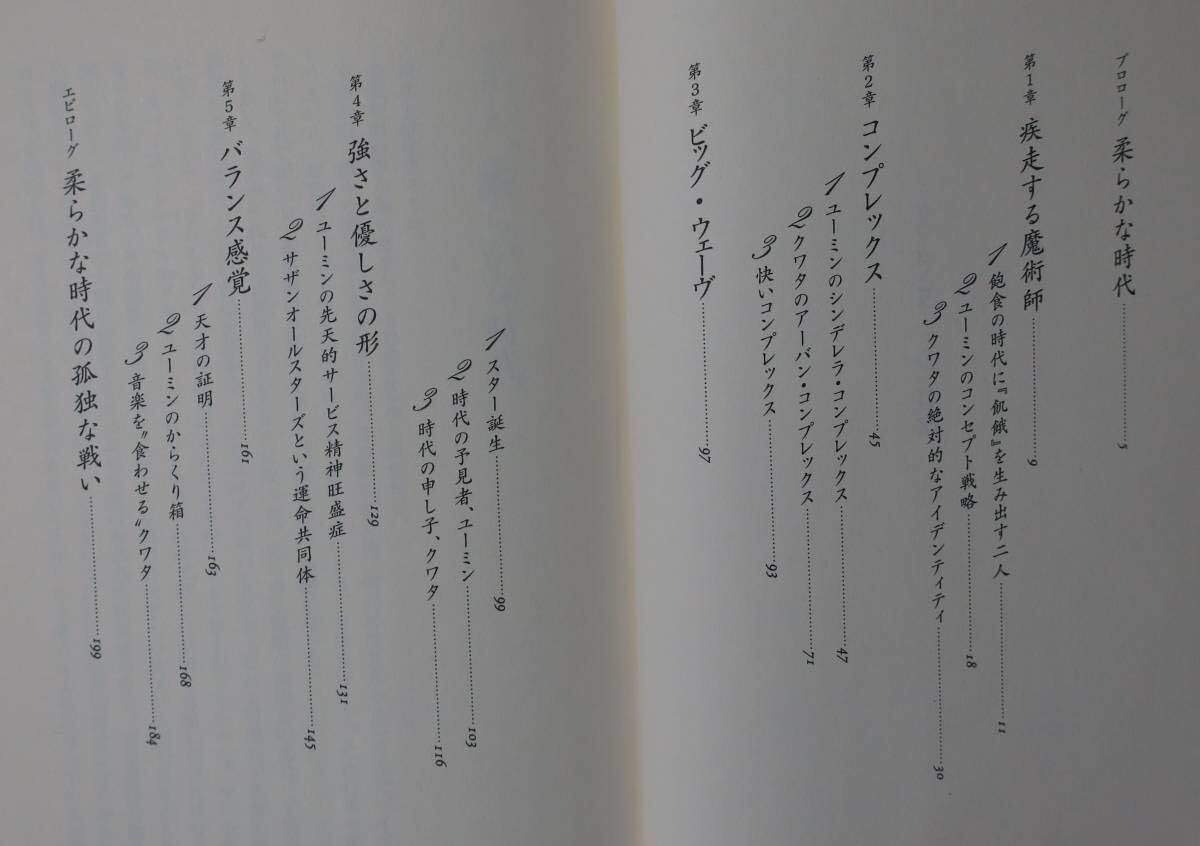 プロローグ 柔らかな時代……5
第1章 疾走する魔術師……9
1 飽食の時代に『飢餓』を生み出す二人……11
2 ユーミンのコンセプト戦略……18
3 クワタの絶対的なアイデンティティ……30
第2章 コンプレックス……45
1 ユーミンのシンデレラ・コンプレックス……47
2 クワタのアーバン・コンプレックス……71
3 快いコンプレックス……93
第3章 ビッグ・ウェーヴ……97
1 スター誕生……99
2 時代の予見者、ユーミン……103
3 時代の申し子、クワタ……116
第4章 強さと優しさの形……129
1 ユーミンの先天的サービス精神旺盛症……131
2 サザンオールスターズという運命共同体……145
第5章 バランス感覚……161
1 天才の証明……163
2 ユーミンのからくり箱……168
3 音楽を〝食わせる〟クワタ……184
エピローグ 柔らかな時代の孤独な戦い……199